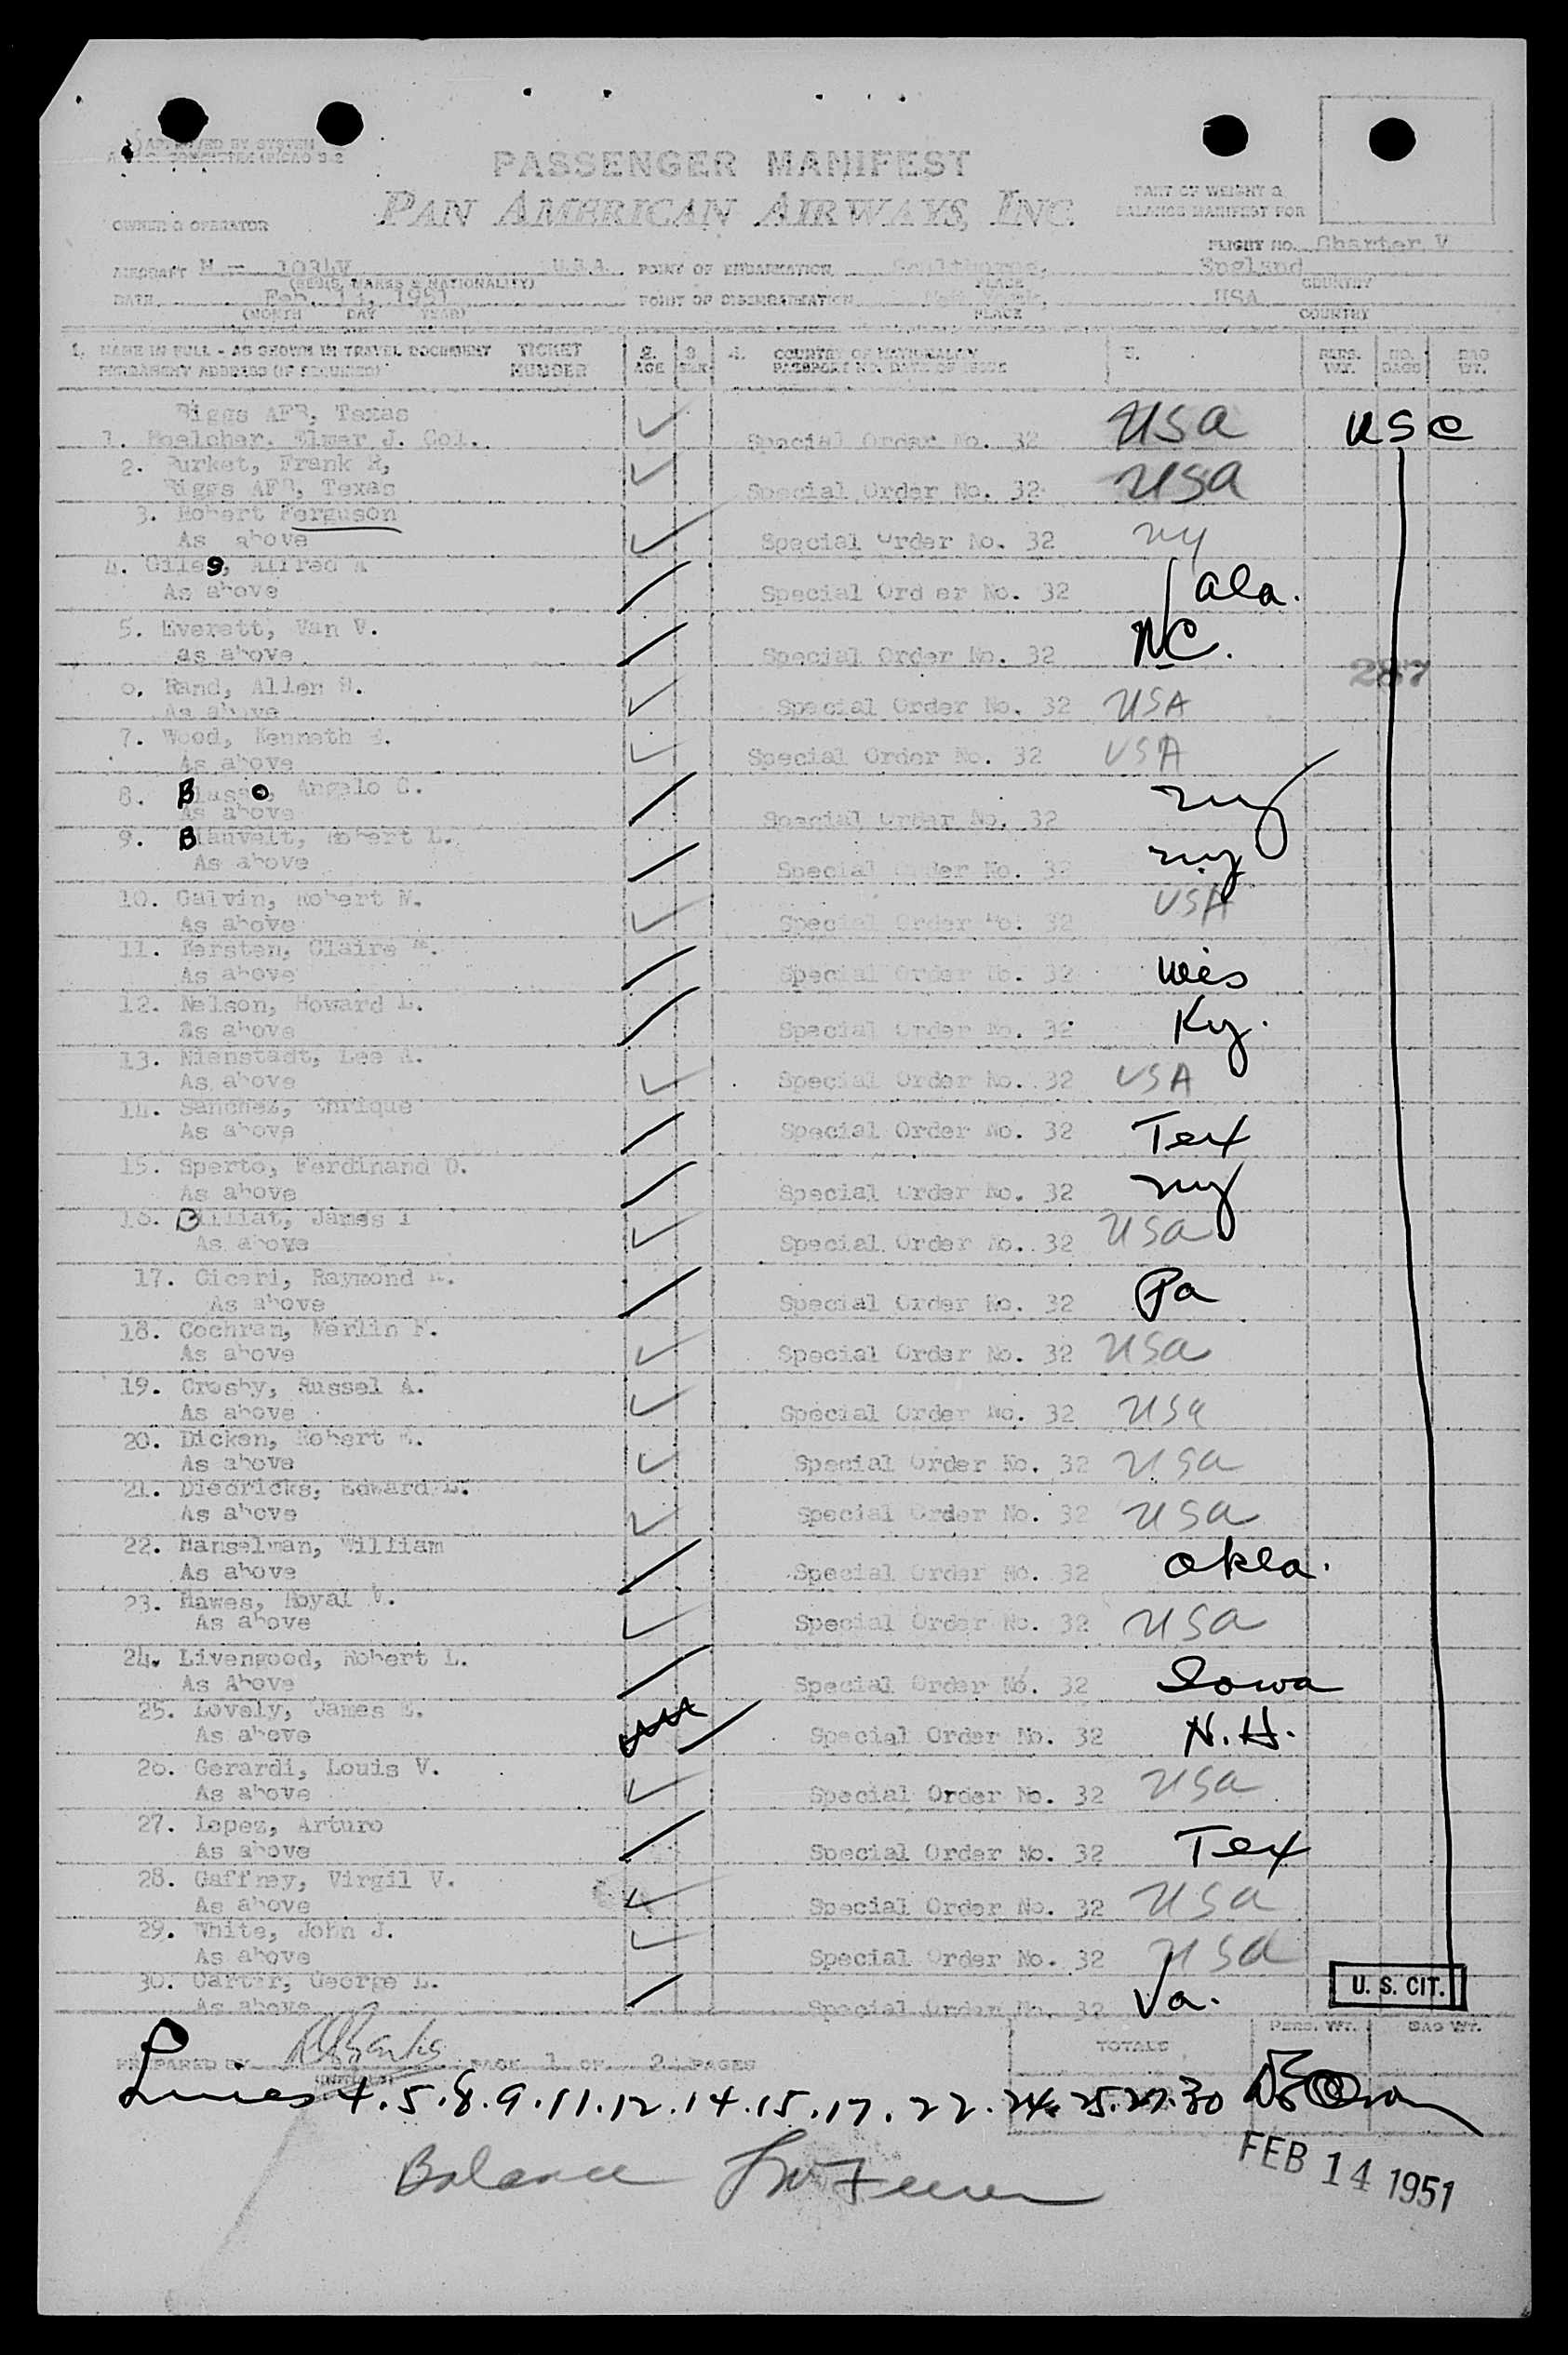 APPROVED BY SYSTEM
PASSENGER MANIFEST
PAN AMERICAN AIRWAYS, INC.
PART OF WEIGHT &
BALANCE MANIFEST FOR
OWNER & OPERATOR
FLIGHT NO. Charter V
AIRCRAFT N - 1034V U.S.A. POINT OF EMBARKATION England
(REGIS. MARKS & NATIONALITY) PLACE COUNTRY
DATE Feb. 1951 POINT OF DISEMBARKATION USA
(MONTH DAY YEAR) PLACE COUNTRY
1. NAME IN FULL - AS SHOWN IN TRAVEL DOCUMENT TICKET 2. 3. 4. COUNTRY OF NATIONALITY 5. PERS. NO. BAG
PERMANENT ADDRESS (IF REQUIRED) NUMBER AGE SEX PASSPORT NO. DATE OF ISSUE WT. BAGS WT.
Biggs AFB, Texas
1. Elmer J. Col. Special Order No. 32 USA USC
2. Burket, Frank R,
Biggs AFB, Texas Special Order No. 32 USA
3. Robert Ferguson
As above Special Order No. 32 NY
4. Giles, Alfred A
As above Special Order No. 32 Ala.
5. Everett, Van V.
as above Special Order No. 32 NC.
6. Rand, Allen H. 287
As above Special Order No. 32 USA
7. Wood, Kenneth
As above Special Order No. 32 USA
8. Blasso, Angelo C.
As above Special Order No. 32 NY
9. Blauvelt, Robert L.
As above Special Order No. 32 NY
10. Galvin, Robert N.
As above Special Order No. 32 USA
11. Kersten, Claire M.
As above Special Order No. 32 Wis
12. Nelson, Howard L.
As above Special Order No. 32 Ky.
13. Nienstadt, Lee A.
As above Special Order No. 32 USA
14. Sanchez, Enrique
As above Special Order No. 32 Tex
15. Sperto, Ferdinand D.
As above Special Order No. 32 NY
16. Billiat, James I
As above Special Order No. 32 USA
17. Ciceri, Raymond
As above Special Order No. 32 Pa
18. Cochran, Merlin F.
As above Special Order No. 32 USA
19. Crosby, Russel A.
As above Special Order No. 32 USA
20. Dicken, Robert
As above Special Order No. 32 USA
21. Diedricks, Edward L.
As above Special Order No. 32 USA
22. Hanselman, William
As above Special Order No. 32 Okla.
23. Hawes, Royal V.
As above Special Order No. 32 USA
24. Livengood, Robert L.
As Above Special Order No. 32 Iowa
25. Lovely, James E.
As above Special Order No. 32 N.H.
26. Gerardi, Louis V.
As above Special Order No. 32 USA
27. Lopez, Arturo
As above Special Order No. 32 Tex
28. Gaffney, Virgil V.
As above Special Order No. 32 USA
29. White, John J.
As above Special Order No. 32 USA
30. Carter, George L.
As above Special Order No. 32 Va.
U. S. CIT.
TOTALS PERS. WT. BAG WT.
PREPARED BY PAGE 1 OF 2 PAGES
(INITIALS)
Lines 4.5.8.9.11.12.14.15.17.22.24.25.27.30
Balance
FEB 14 1951